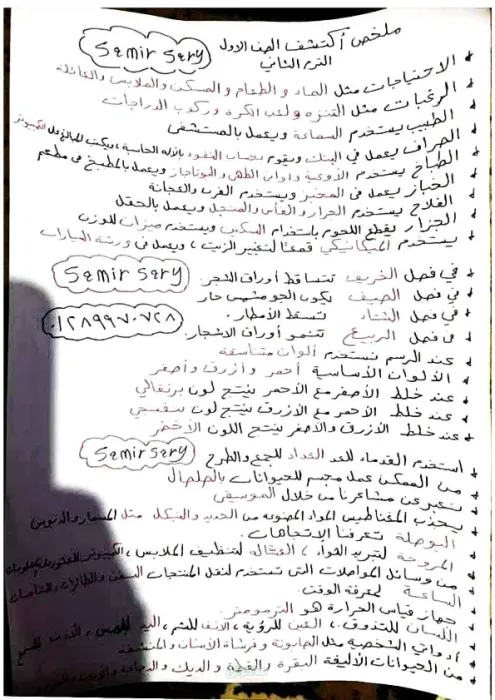 ملخص أكتشف الصف الاول
Semir Sery
الترم الثاني
* الاحتياجات مثل الماء والطعام والمسكن والملابس والعائلة
* الرغبات مثل التنزه ولعب الكرة وركوب الدراجات
* الطبيب يستخدم السماعة ويعمل بالمستشفى
* الصراف يعمل في البنك ويقوم بحساب النقود بالآله الحاسبة، ويكتب المبالغ على الكمبيوتر
* الطباخ يستخدم الأوعية واوانى الطهى والبوتاجاز ويعمل بالمطبخ في مطعم
* الخباز يعمل في المخبز ويستخدم الفرن والعجانة
* الفلاح يستخدم الجرار والفأس والمنجل ويعمل بالحقل
* الجزار يقطع اللحوم باستخدام السكين ويستخدم ميزان للوزن
* يستخدم الميكانيكي قمعًا لتغيير الزيت، ويعمل في ورشة السيارات
* في فصل الخريف تتساقط أوراق الشجر.
Semir Sery
* في فصل الصيف يكون الجو مشمس حار
* في فصل الشتاء تسقط الأمطار.
٠١٢٨٩٩٧٠٧٢٨
* في فصل الربيع تنمو أوراق الاشجار.
* عند الرسم نستخدم ألوان متناسقة
* الألوان الأساسية أحمر وأزرق وأصفر
* عند خلط الأصفر مع الأحمر ينتج لون برتقالي
* عند خلط الأحمر مع الأزرق ينتج لون بنفسجي
* عند خلط الأزرق والأصفر ينتج اللون الأخضر
* استخدم القدماء للعد العداد للجمع والطرح
Semir Sery
* من الممكن عمل مجسم للحيوانات بالصلصال
* نعبر عن مشاعرنا من خلال الموسيقى
* يجذب المغناطيس المواد المصنوعه من الحديد والنيكل مثل المسمار والدبوس
* البوصلة تعرفنا الاتجاهات.
* المروحة لتبريد الهواء، الغسالة لتنظيف الملابس، الكمبيوتر
* من وسائل المواصلات التى تستخدم لنقل المنتجات السفن والطائرات والشاحنات
* الساعة لمعرفة الوقت.
* جهاز قياس الحرارة هو الترمومتر.
* اللسان للتذوق، العين للرؤية، الأنف للشم، اليد للمس، الأذن للسمع
* أدواتى الشخصية مثل الصابونة وفرشاة الأسنان والمنشفة
* من الحيوانات الأليفة البقرة والقطة والديك والدجاجة والأرنب